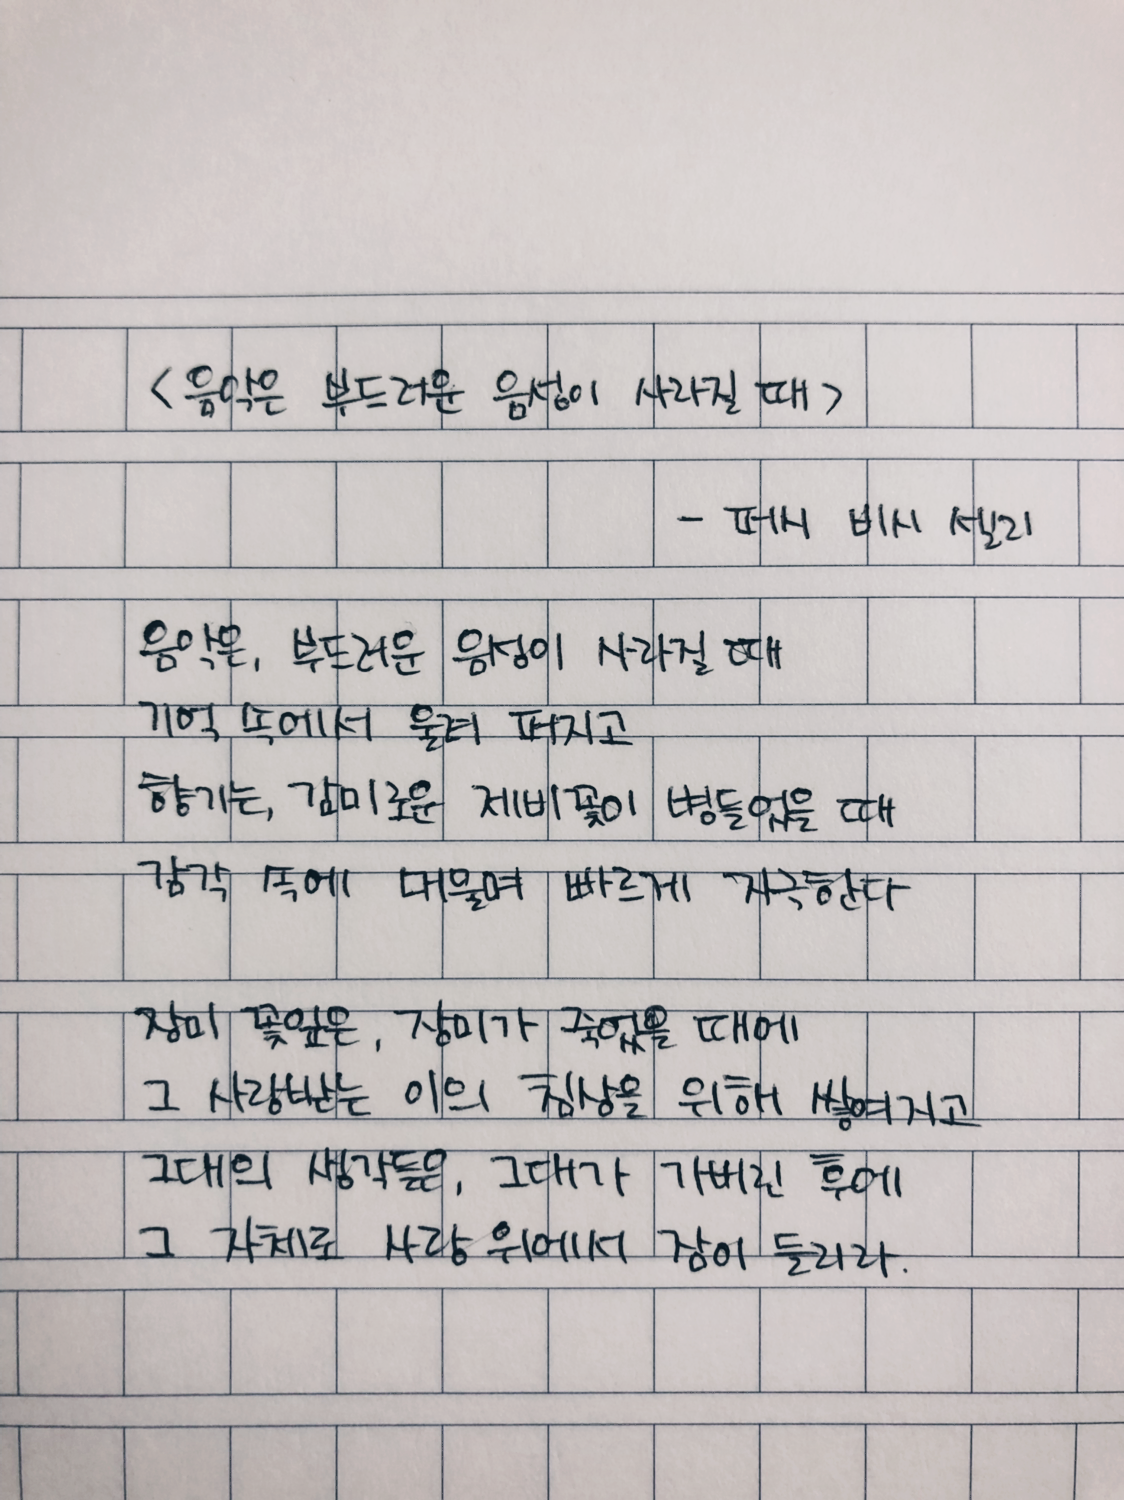 <음악은 부드러운 음성이 사라질 때>
- 퍼시 비시 셸리
음악은, 부드러운 음성이 사라질 때
기억 속에서 울려 퍼지고
향기는, 감미로운 제비꽃이 병들었을 때
감각 속에 머물며 빠르게 자극한다
장미 꽃잎은, 장미가 죽었을 때에
그 사랑받는 이의 침상을 위해 쌓여지고
그대의 생각들은, 그대가 가버린 후에
그 자체로 사랑 위에서 잠이 들리라.